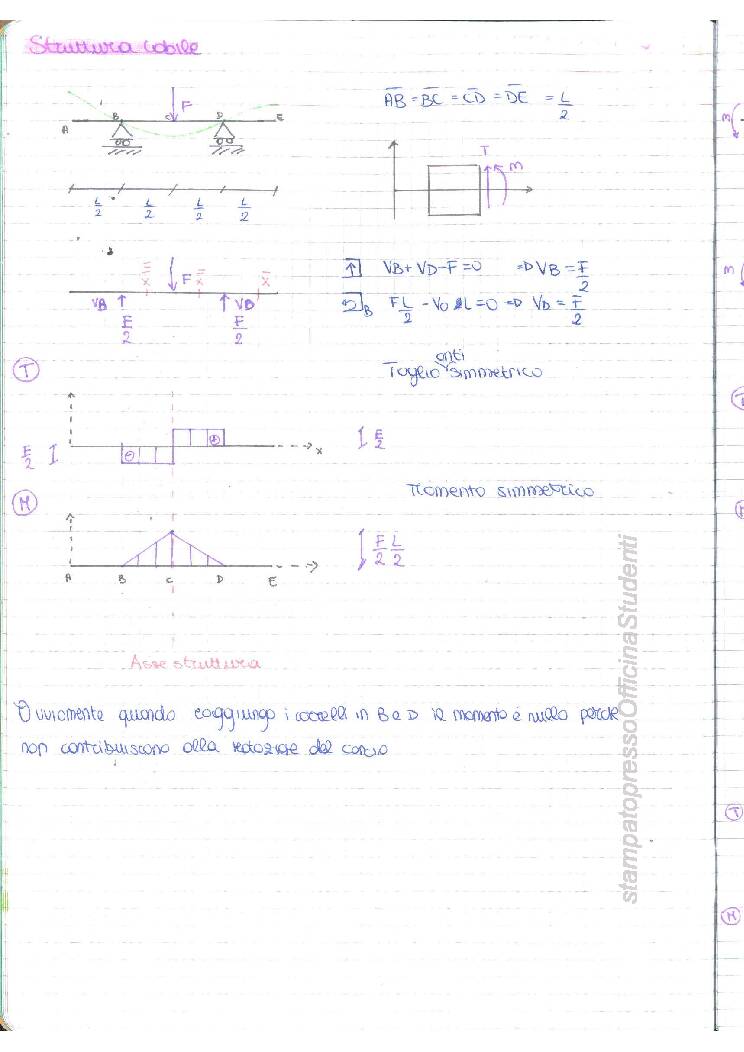 Struttura labile
AB = BC = CD = DE = L/2
F
A B C D E
T
M
L/2 L/2 L/2 L/2
F
VB VD
F/2 F/2
x x x
↑ VB + VD - F = 0 => VB = F/2
B F L/2 - VD L = 0 => VD = F/2
T
Taglio anti simmetrico
F/2
x
F/2
M
Momento simmetrico
F/2 L/2
A B C D E
Asse struttura
Ovviamente quando raggiungo i carrelli in B e D il momento è nullo perchè
non contribuiscono alla rotazione del concio
stampatopressoOfficinaStudenti
M
M
T
M